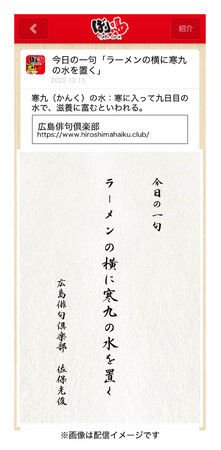 ばりいち
紹介
今日の一句「ラーメンの横に寒九の水を置く」
2022.12.15
寒九（かんく）の水：寒に入って九日目の水で、滋養に富むといわれる。
広島俳句倶楽部
https://www.hiroshimahaiku.club/
今日の一句
ラーメンの横に寒九の水を置く
広島俳句倶楽部　佐保光俊
※画像は配信イメージです